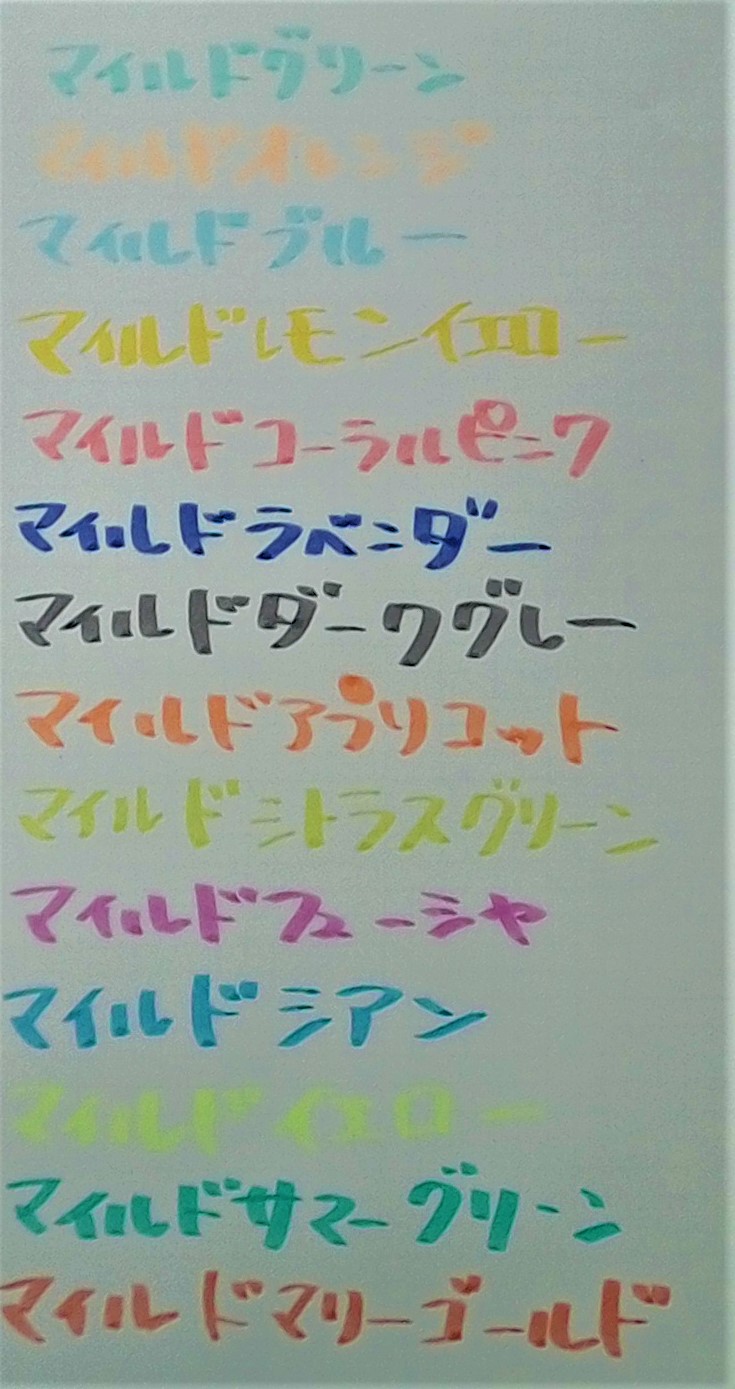 マイルドグリーン
マイルドオレンジ
マイルドブルー
マイルドレモンイエロー
マイルドコーラルピンク
マイルドラベンダー
マイルドダークグレー
マイルドアプリコット
マイルドシトラスグリーン
マイルドフューシャ
マイルドシアン
マイルドイエロー
マイルドサマーグリーン
マイルドマリーゴールド